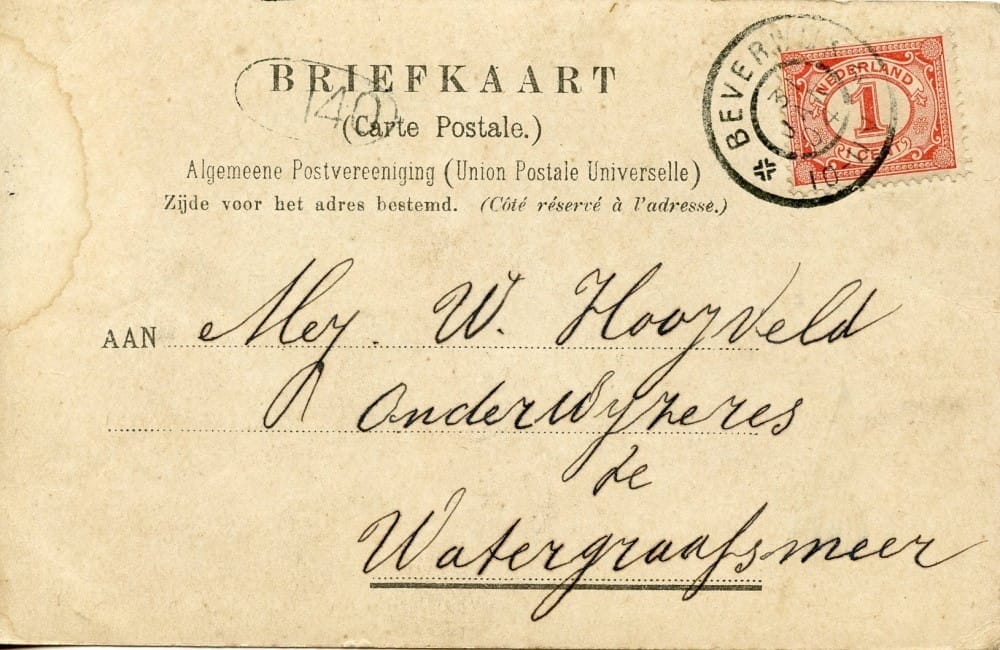 BRIEFKAART
140
(Carte Postale.)
Algemeene Postvereeniging (Union Postale Universelle)
Zijde voor het adres bestemd. (Côté réservé à l'adresse.)
NEDERLAND
1
10
AAN Mej. W. Hooyveld
Onderwyzeres
te
Watergraafsmeer